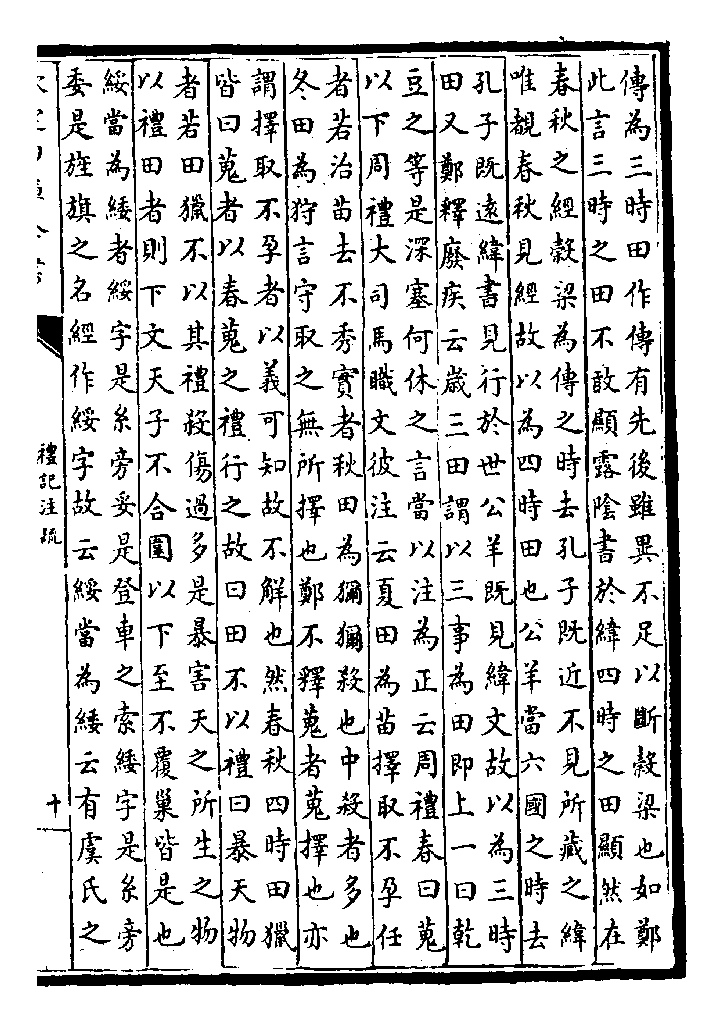 傳為三時田作傳有先後雖異不足以斷穀梁也如鄭
此言三時之田不敢顯露陰書於緯四時之田顯然在
春秋之經穀梁為傳之時去孔子既近不見所藏之緯
唯覩春秋見經故以為四時田也公羊當六國之時去
孔子既遠緯書見行於世公羊既見緯文故以為三時
田又鄭釋廢疾云歲三田謂以三事為田即上一曰乾
豆之等是深塞何休之言當以注為正云周禮春曰蒐
以下周禮大司馬職文彼注云夏田為苗擇取不孕任
者若治苗去不秀實者秋田為獮獮殺也中殺者多也
冬田為狩言守取之無所擇也鄭不釋蒐者蒐擇也亦
謂擇取不孕者以義可知故不解也然春秋四時田獵
皆曰蒐者以春蒐之禮行之故曰田不以禮曰暴天物
者若田獵不以其禮殺傷過多是暴害天之所生之物
以禮田者則下文天子不合圍以下至不覆巢皆是也
綏當為緌者綏字是糸旁妥是登車之索緌字是糸旁
委是旌旗之名經作綏字故云綏當為緌云有虞氏之
禮記注疏
十